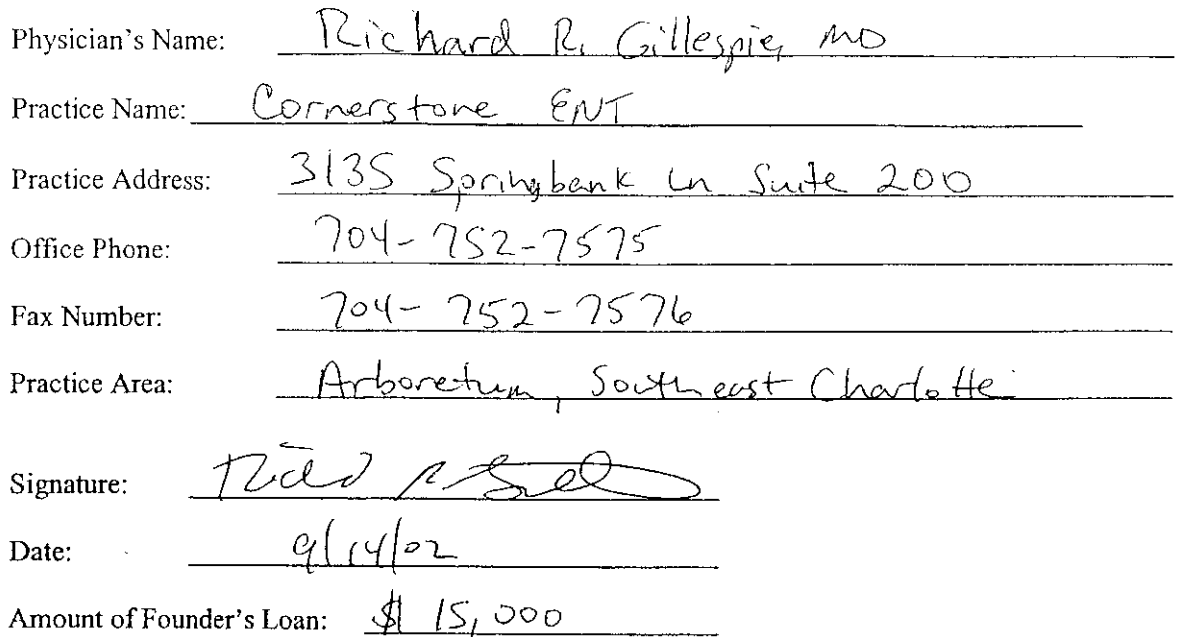 Physician's Name: Richard R. Gillespie, MD
Practice Name: Cornerstone ENT
Practice Address: 3135 Springbank Ln Suite 200
Office Phone: 704-752-7575
Fax Number: 704-752-7576
Practice Area: Arboretum, Southeast Charlotte
Signature:
Date: 9/14/02
Amount of Founder's Loan: $ 15,000